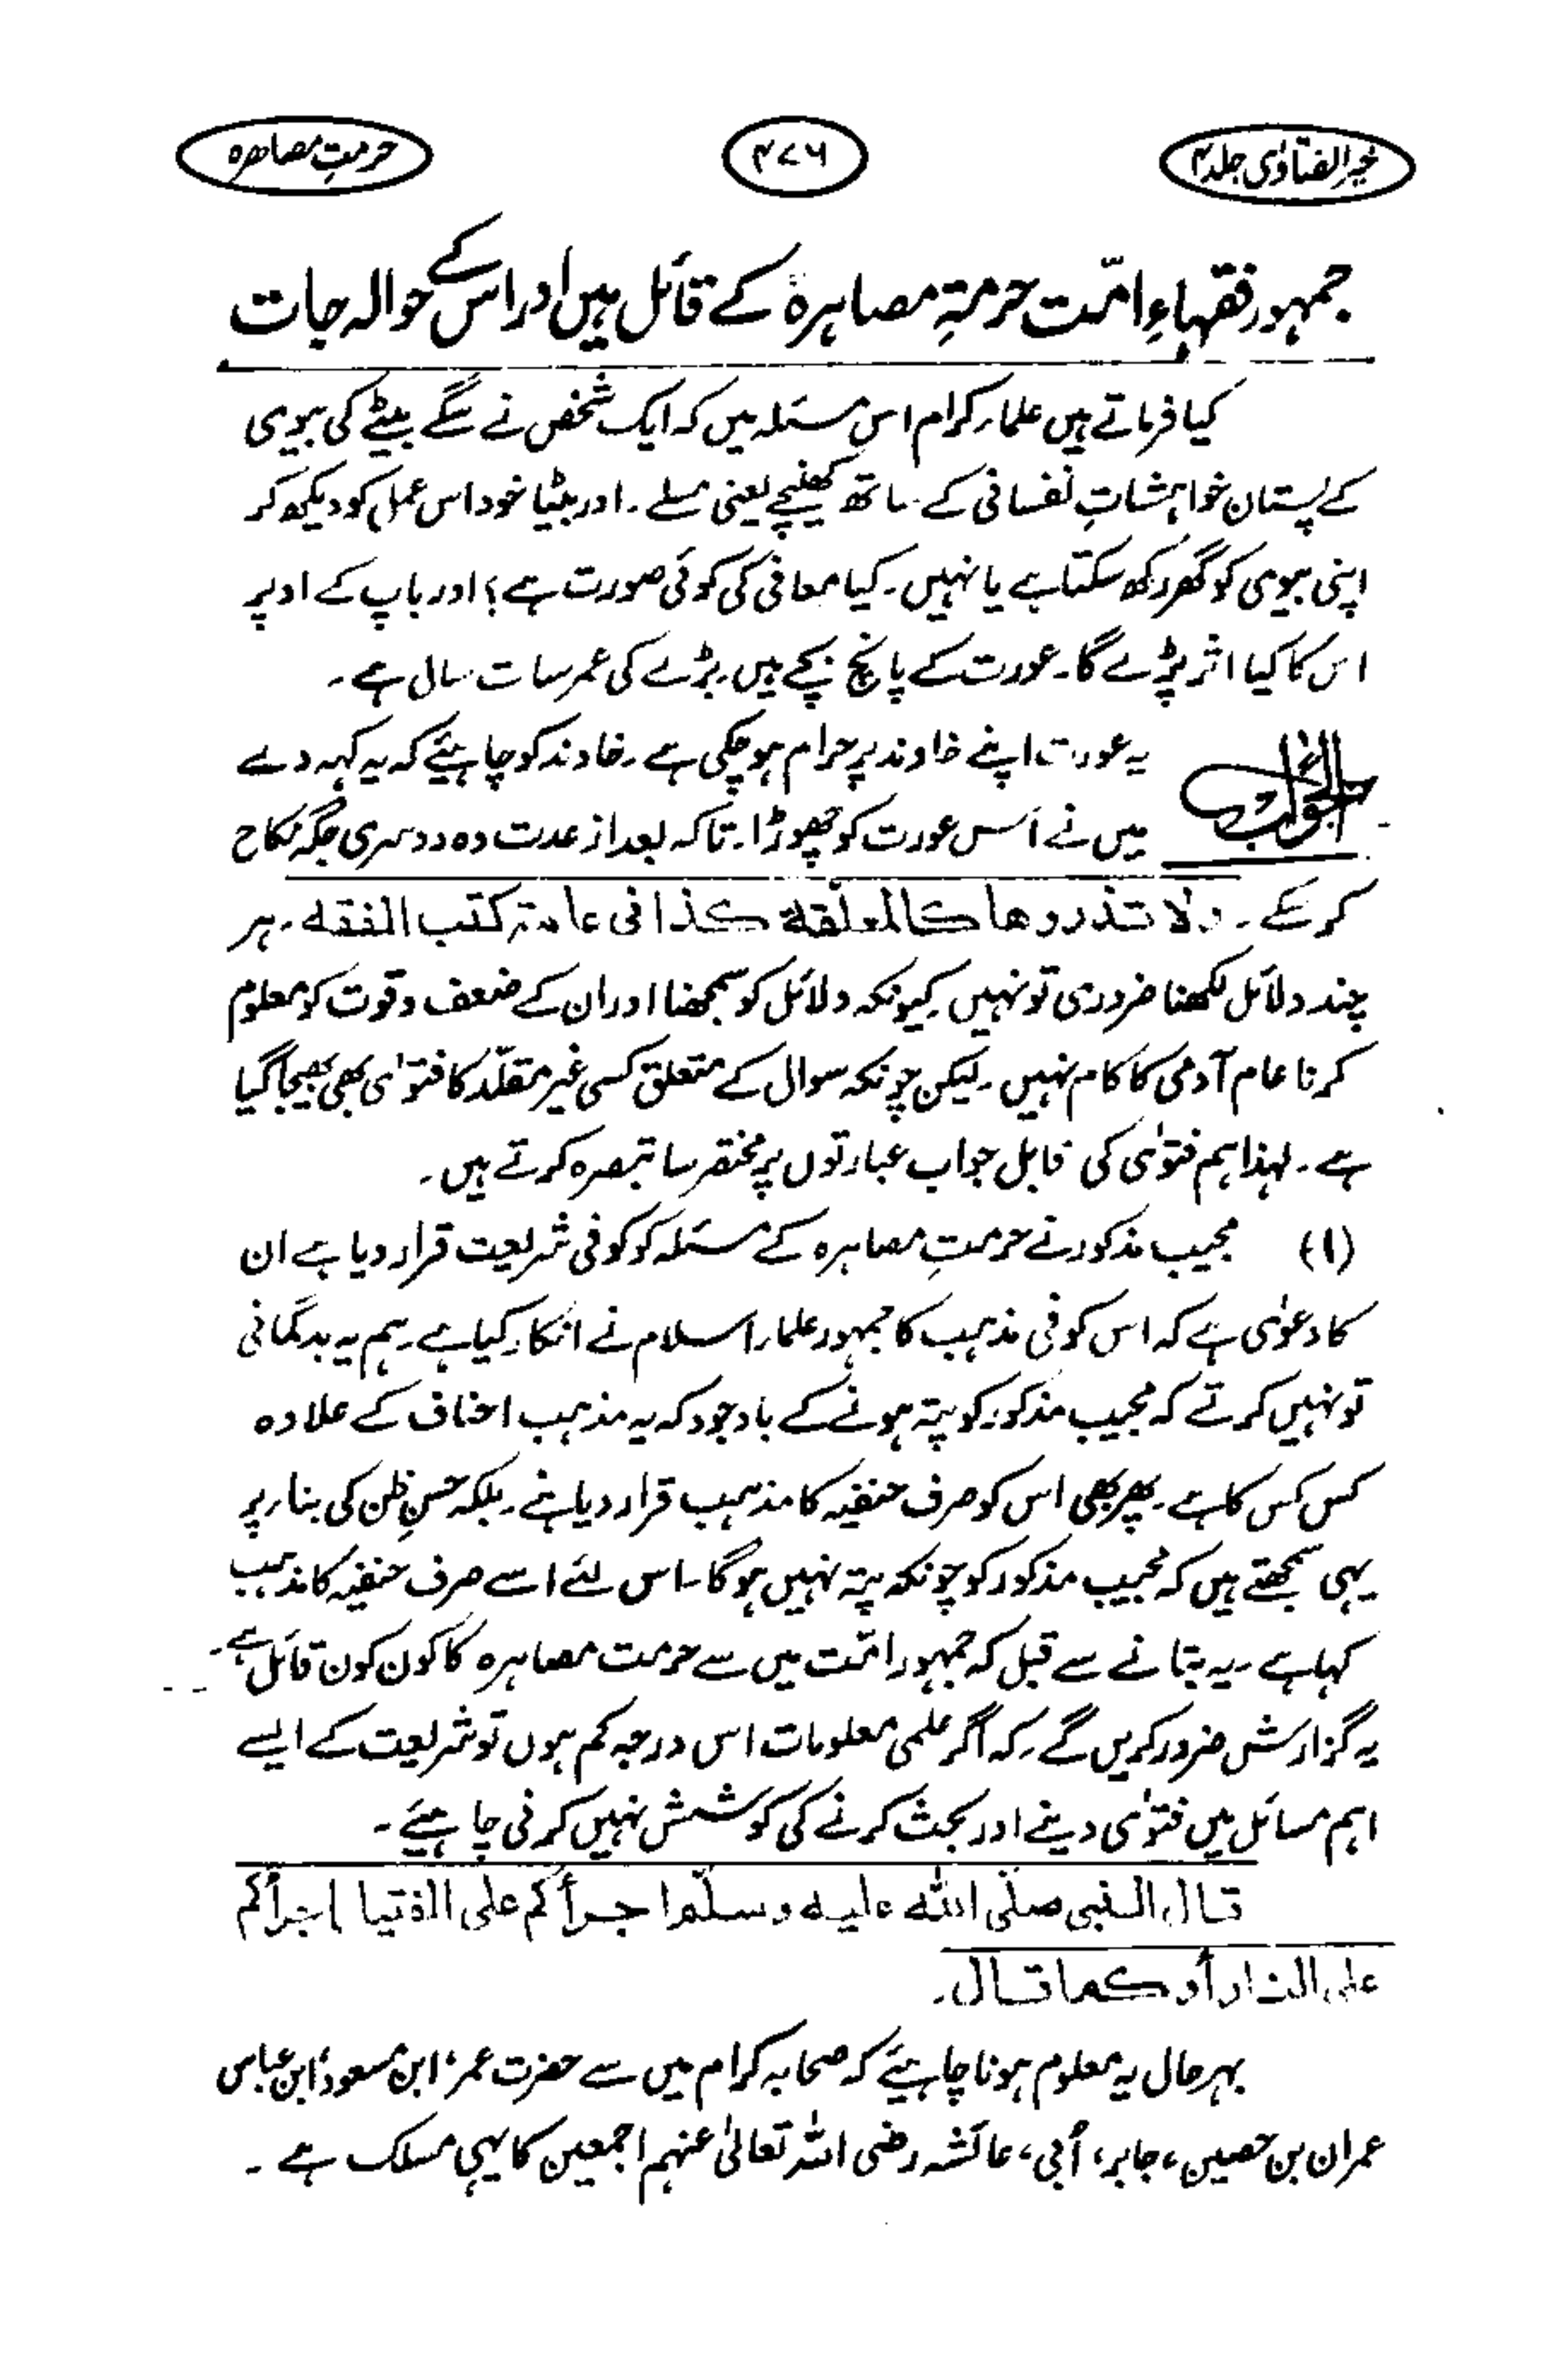 خیر الفتاوٰی جلد ۴
۴۷۶
حرمتِ مصاہرہ
جمہور فقہاءِ امّت حرمۃِ مصاہرۃ کے قائل ہیں اور اس کے حوالہ جات
کیا فرماتے ہیں علماء کرام اس مسئلہ میں کہ ایک شخص نے سگے بیٹے کی بیوی
کے پستان خواہشاتِ نفسانی کے ساتھ کھینچے یعنی مسلے۔ اور بیٹا خود اس عمل کو دیکھ کر
اپنی بیوی کو گھر رکھ سکتا ہے یا نہیں۔ کیا معافی کی کوئی صورت ہے؟ اور باپ کے اوپر
اس کا کیا اثر پڑے گا۔ عورت کے پانچ بچے ہیں بڑے کی عمر سات سال ہے۔
الجواب
یہ عورت اپنے خاوند پر حرام ہو چکی ہے۔ خاوند کو چاہیئے کہ یہ کہہ دے
میں نے اس عورت کو چھوڑا۔ تاکہ بعد از عدت وہ دوسری جگہ نکاح
کر سکے۔ ولا تذروها كالمعلقة كذا فی عامۃ کتب الفقه۔ ہر
چند دلائل لکھنا ضروری تو نہیں۔ کیونکہ دلائل کو سمجھنا اور ان کے ضعف وقوت کو معلوم
کرنا عام آدمی کا کام نہیں۔ لیکن چونکہ سوال کے متعلق کسی غیر مقلّد کا فتوٰی بھی بھیجا گیا
ہے۔ لہذا ہم فتوٰی کی قابل جواب عبارتوں پر مختصر سا تبصرہ کرتے ہیں۔
(۱) مجیب مذکور نے حرمتِ مصاہرہ کے مسئلہ کو کوفی شریعت قرار دیا ہے ان
کا دعوٰی ہے کہ اس کوفی مذہب کا جمہور علماء اسلام نے انکار کیا ہے۔ ہم یہ بدگمانی
تو نہیں کرتے کہ مجیب مذکور کو پتہ ہونے کے باوجود کہ یہ مذہب احناف کے علاوہ
کس کس کا ہے۔ پھر بھی اس کو صرف حنفیہ کا مذہب قرار دیا ہے۔ بلکہ حسنِ ظن کی بناء پر
یہی سمجھتے ہیں کہ مجیب مذکور کو چونکہ پتہ نہیں ہو گا۔ اس لئے اسے صرف حنفیہ کا مذہب
کہا ہے۔ یہ بتانے سے قبل کہ جمہور امّت میں سے حرمت مصاہرہ کا کون کون قائل ہے۔
یہ گزارش ضرور کریں گے۔ کہ اگر علمی معلومات اس درجہ کم ہوں تو شریعت کے ایسے
اہم مسائل میں فتوٰی دینے اور بحث کرنے کی کوشش نہیں کرنی چاہیئے۔
قال النبی صلّی اللّٰه علیه وسلّم اجرأكم علی الفتیا اجرأكم
علی النار أو كما قال۔
بہرحال یہ معلوم ہونا چاہیئے کہ صحابہ کرام میں سے حضرت عمر، ابن مسعود، ابن عباس
عمران بن حصین، جابر، أبی، عائشہ رضی اللّٰہ تعالیٰ عنہم اجمعین کا یہی مسلک ہے۔